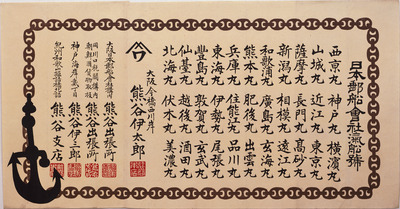 日本郵船會社滊船號
西京丸 神戸丸 横濱丸
山城丸 近江丸 東京丸
薩摩丸 長門丸 高砂丸
新潟丸 相模丸 遠江丸
和歌浦丸 廣島丸 玄海丸
熊本丸 肥後丸 出雲丸
兵庫丸 住能江丸 品川丸
東海丸 伊勢丸 尾張丸
豊島丸 敦賀丸 玄武丸
仙臺丸 越後丸 酒田丸
北海丸 伏木丸 美濃丸
大阪今橋西川岸
熊谷伊太郎
熊谷出張所
熊谷出張所
神戸海岸
熊谷伊三郎
熊谷支店